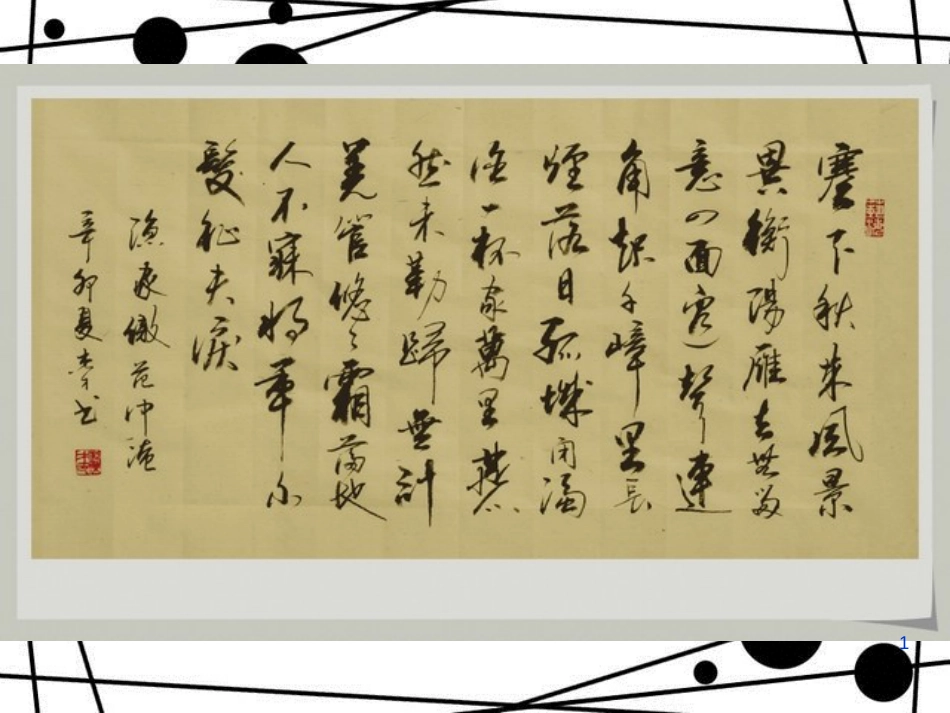 塞下秋来風景
異衡陽雁去無留
意四面邊聲連
角起千嶂里長
煙落日孤城閉濁
酒一杯家萬里燕
然未勒歸無計
羌管悠悠霜滿地
人不寐将軍白
髮征夫淚
漁家傲 范仲淹
辛卯夏书
1